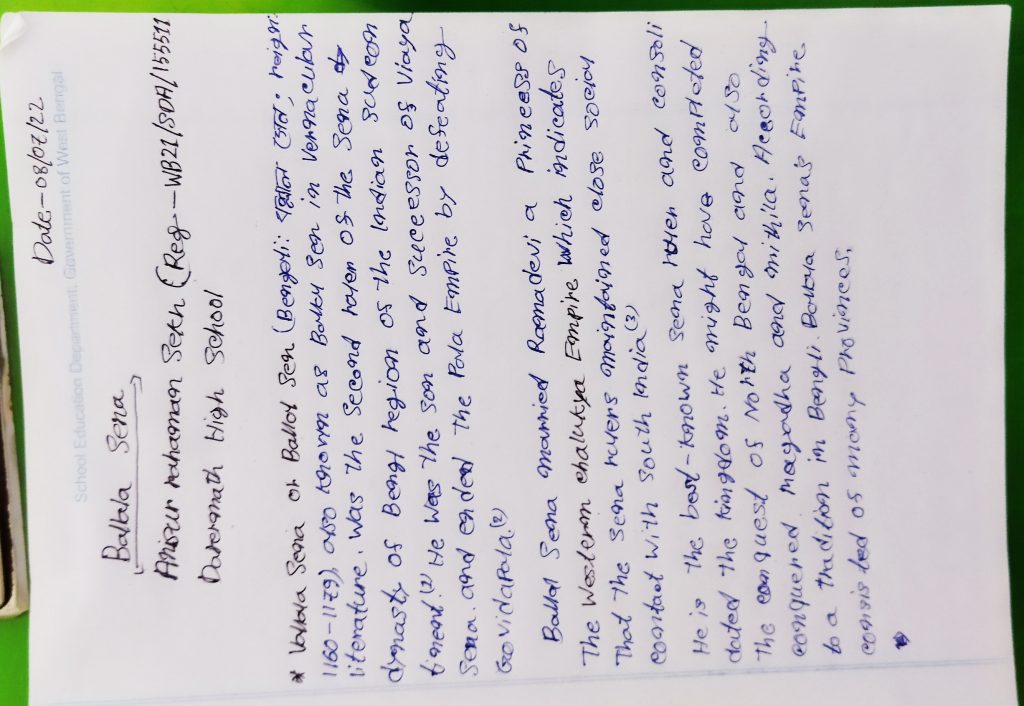 Date-08/07/22
School Education Department. Government of West Bengal
Ballala Sena
Anisur rahaman Sekh (Reg--WB21/SDA/155511
High School
* Vallala Sena or Ballal Sen (Bengali: বল্লাল সেন; reign:
1160-1179), also known as Ballal Sen in vernacular
literature. Was the Second rular of the Sena
dynasty of Bengl region of the Indian
tinent. He Was the Son and Successor of Viaya
Sena. and ended the Pala Empire by defeating
Govidapala.(2)
Ballal Sena married Ramadevi a Princess of
The Western chalukya Empire Which indicates
That the Sena rulers maintained close social
contact with south India(3)
He is the best-known Sena ruler and consoli
dated the kingdom. He might have completed
The conquest of North Bengal and also
conquered Magadha and mithila. According
to a tradition in Bengl. Ballala Sena's Empire
consisted of many Provinces.